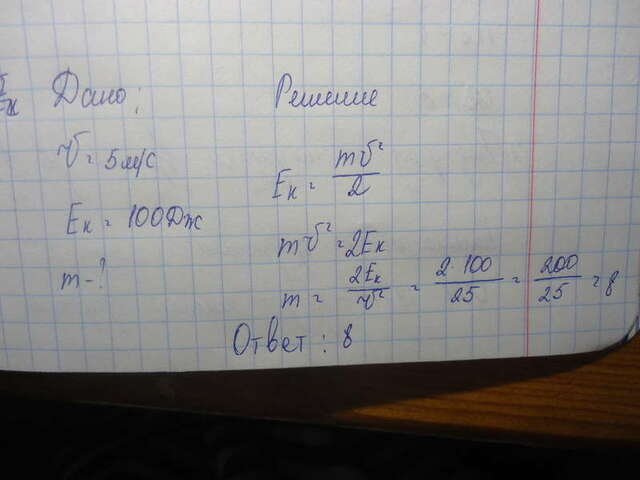 Ек
Дано:
v = 5 м/с
Ек = 100 Дж
m - ?
Решение
Ек = mv²/2
mv² = 2Ек
m = 2Ек/v² = 2·100/25 = 200/25 = 8
Ответ: 8